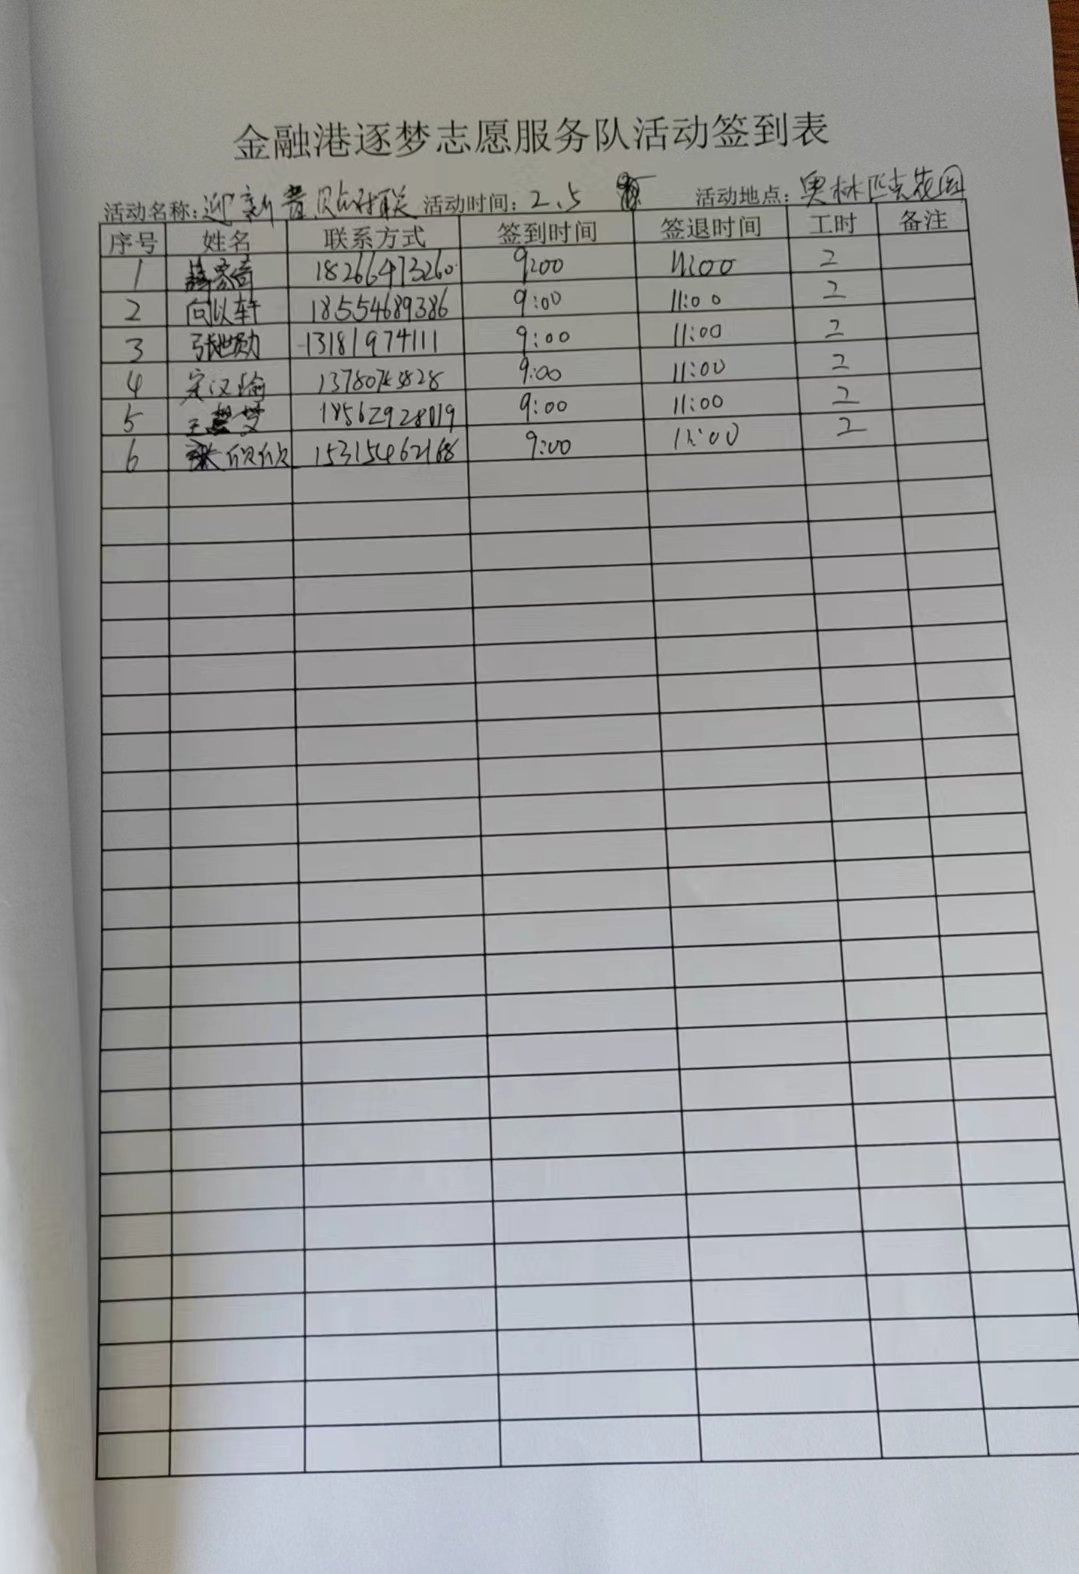 金融港逐梦志愿服务队活动签到表
活动名称:迎新春贴对联 活动时间:2.5 活动地点:奥林匹克花园
序号 姓名 联系方式 签到时间 签退时间 工时 备注
1 18266473260 9:00 11:00 2
2 向以轩 18554689386 9:00 11:00 2
3 13181974111 9:00 11:00 2
4 9:00 11:00 2
5 18562928019 9:00 11:00 2
6 张欣欣 15315462168 9:00 11:00 2